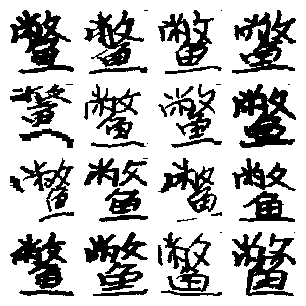 鳖鳖鳖鳖
鳖鳖鳖鳖
鳖鳖鳖鳖
鳖鳖鳖鳖